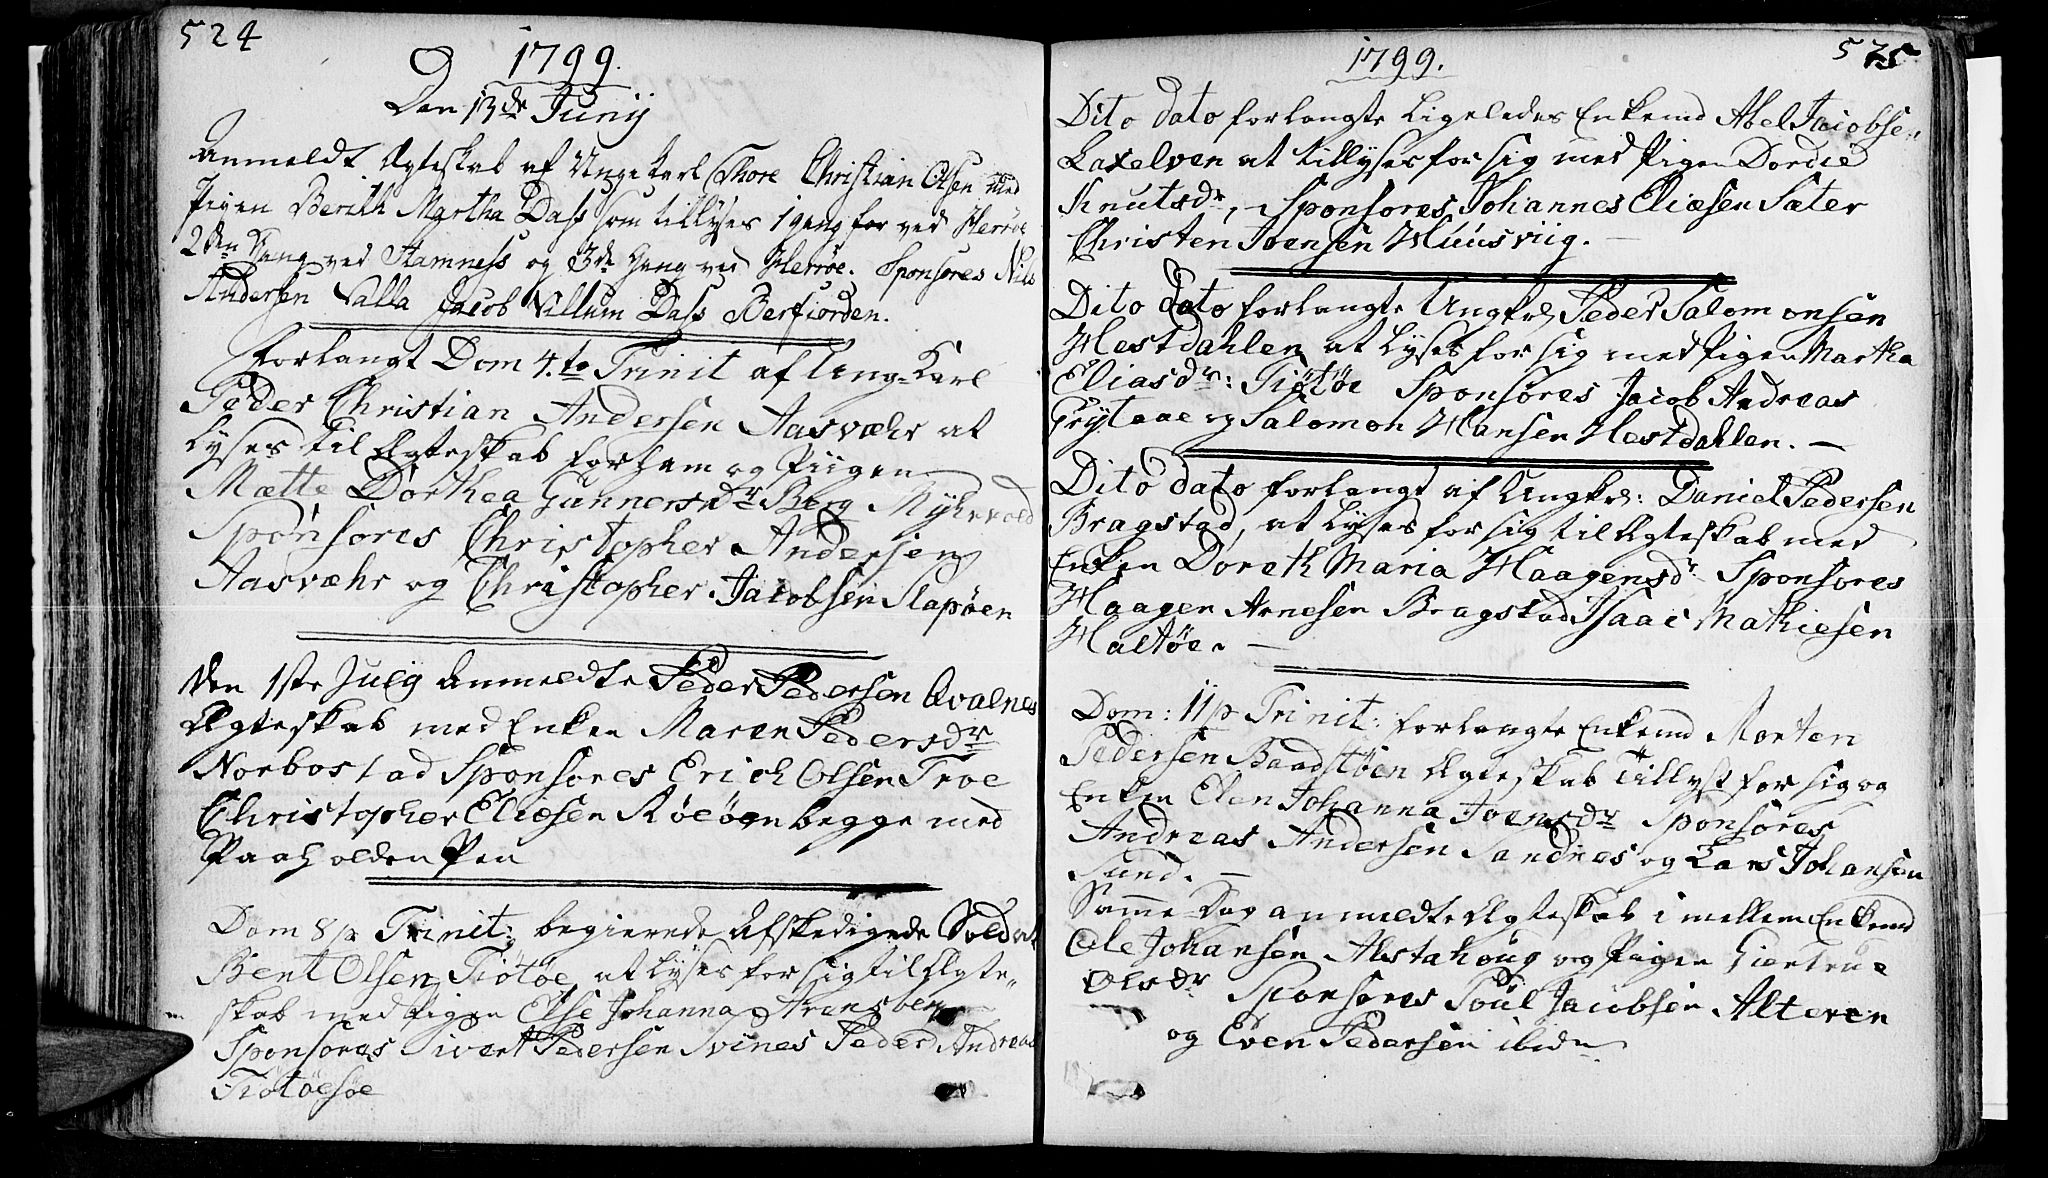 524
1799.
Den 13de Junij
Anmeldt Ægteskab af Unge Karl Thore Christian Olsen med
Pigen Berith Martha Dass som tillyses 1 gang for ved Herrøe
2den Gang ved Stamness og 3de Gang ved Herrøe. Sponsores Nils
Andersen Valla Jacob Villum Dass Berfiorden.
Forlangt Dom 4.to Trinit af Ung=Karl
Peder Christian Andersen Aasvæhr at
Lyses til Ægteskab for ham og Piigen
Mætte Dorthea Gunnersdr Berg Myhrvold
Sponsores Christopher Andersen
Aasvæhr og Christopher Jacobsen Slapøen
Den 1ste Julij Anmeldte Peder Pedersen Qvalnes
Ægteskab med Enken Maren Pedersdr
Norbostad Sponsores Erich Olsen Troe
Christopher Eliæsen Røeøen begge med
Paaholden Pen
Dom 8 p Trinit: begierede Afskedigede Soldat
Bent Olsen Tiøtøe at Lyses for sig til Ægte=
skab med Pigen Else Johanna Arensber
Sponsores Sivert Pedersen Svines Peder Andreas
Tiøtøesøe
1799.
525
Dito dato forlangte Ligeledes Enkemd Abel Jacobsen
Laxelven at tillyses for sig med Pigen Dordie
Knutsdr, Sponsores Johannes Eliæsen Sæter
Christen Joensen Huusviig.
Dito dato forlangte Ungkrl Peder Salomonsen
Hestdahlen at Lyses for sig med Pigen Martha
Eliasdr: Tiøtøe Sponsores Jacob Andreas
Grytaae og Salomon Hansen Hestdahlen.
Dito dato forlangt af Ungkrl: Daniel Pedersen
Bragstad, at Lyses for sig til Ægteskab med
Enken Doreth Maria Haagensdr Sponsores
Haagen Arnesen Bragstad Isaac Mathiesen
Haltøe.
Dom: 11 p Trinit: forlangte Enkemd Morten
Pedersen Baadstøen Ægteskab Tillyst for sig og
Enken Elen Johanna Joensdr Sponsores
Andreas Andersen Sandnes og Lars Johansen
Sund.
Samme Dag anmeldte Ægteskab imellem Enkemd
Ole Johansen Alstahoug og Pigen Giertrue
Olsdr Sponsores Poul Jacobsen Alteren
og Even Pedersen ibidm